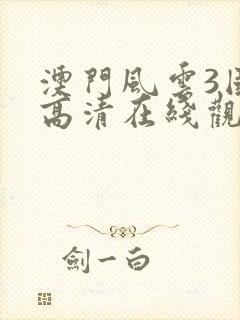 澳門風雲3
高清在綫觀
劍一白